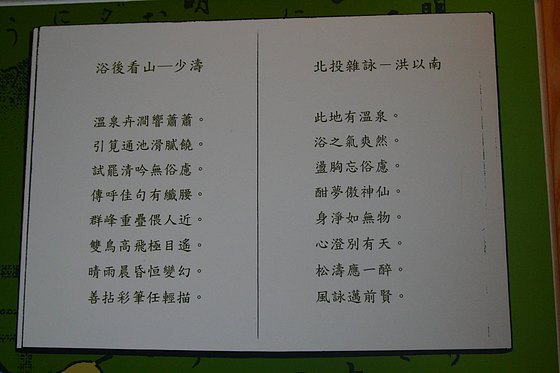 浴後看山—少濤
溫泉卉澗響蕭蕭。
引筧通池滑膩饒。
試罷清吟無俗慮。
傳呼佳句有纖腰。
群峰重疊偎人近。
雙鳥高飛極目遙。
晴雨晨昏恒變幻。
善拈彩筆任輕描。
北投雜詠—洪以南
此地有溫泉。
浴之氣爽然。
盪胸忘俗慮。
酣夢傲神仙。
身淨如無物。
心澄別有天。
松濤應一醉。
風詠邁前賢。